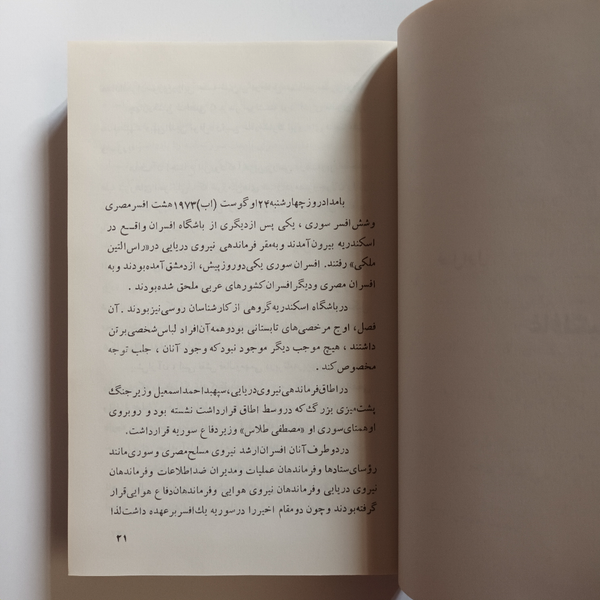 بامداد روز چهارشنبه ۲۴ اوگوست (اب) ۱۹۷۳ هشت افسر مصری
وشش افسر سوری ، یکی پس از دیگری از باشگاه افسران واقع در
اسکندریه بیرون آمدند و به مقر فرماندهی نیروی دریایی در «راس التین
ملکی» رفتند. افسران سوری یکی دو روز پیش، از دمشق آمده بودند و به
افسران مصری و دیگر افسران کشورهای عربی ملحق شده بودند .
در باشگاه اسکندریه گروهی از کارشناسان روسی نیز بودند . آن
فصل، اوج مرخصی‌های تابستانی بود و همه آن افراد لباس شخصی بر تن
داشتند ، هیچ موجب دیگر موجود نبود که وجود آنان ، جلب توجه
مخصوص کند .
در اطاق فرماندهی نیروی دریایی، سپهبد احمد اسمعیل وزیر جنگ
پشت میزی بزرگ که در وسط اطاق قرار داشت نشسته بود و روبروی
او همتای سوری او «مصطفی طلاس» وزیر دفاع سوریه قرار داشت.
در دو طرف آنان افسران ارشد نیروی مسلح مصری و سوری مانند
رؤسای ستادها و فرماندهان عملیات و مدیران ضد اطلاعات و فرماندهان
نیروی دریایی و فرماندهان نیروی هوایی و فرماندهان دفاع هوایی قرار
گرفته بودند و چون دو مقام اخیر را در سوریه یك افسر بر عهده داشت لذا
۲۱